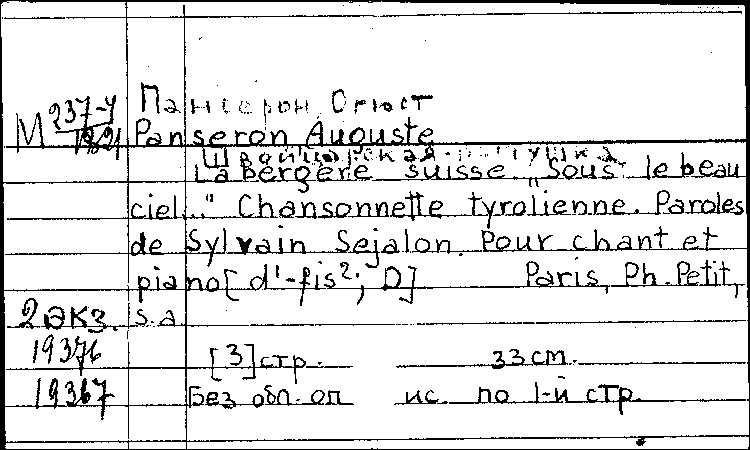 Пансерон, Огюст
М 237-У
Panseron, Auguste
Швейцарская пастушка
La bergère suisse „Sous le beau
ciel..." Chansonnette tyrolienne. Paroles
de Sylvain Sejalon. Pour chant et
piano [d¹-fis²; D] Paris, Ph. Petit,
2 экз. s.a.
19376 [3] стр. 33 см.
19367 Без обл. опис. по 1-й стр.